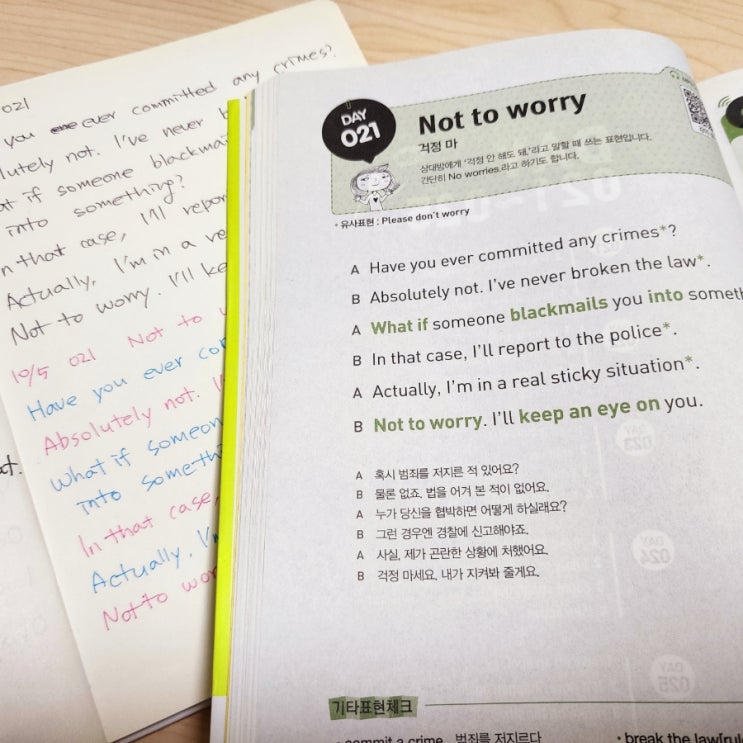 021
you ever committed any crimes?
lutely not. I've never b
if someone blackmai
into something?
n that case, I'll repor
Actually, I'm in a re
Not to worry. I'll ke
10/5 021 Not to w
Have you ever co
Absolutely not. I
What if someon
into someth
In that case,
Actually, I'm
Not to wor
DAY
021
Not to worry
걱정 마
상대방에게 '걱정 안 해도 돼.'라고 말할 때 쓰는 표현입니다.
간단히 No worries.라고 하기도 합니다.
• 유사표현 : Please don't worry
A Have you ever committed any crimes*?
B Absolutely not. I've never broken the law*.
A What if someone blackmails you into someth
B In that case, I'll report to the police*.
A Actually, I'm in a real sticky situation*.
B Not to worry. I'll keep an eye on you.
A 혹시 범죄를 저지른 적 있어요?
B 물론 없죠. 법을 어겨 본 적이 없어요.
A 누가 당신을 협박하면 어떻게 하실래요?
B 그런 경우엔 경찰에 신고해야죠.
A 사실, 제가 곤란한 상황에 처했어요.
B 걱정 마세요. 내가 지켜봐 줄게요.
기타표현체크
• commit a crime 범죄를 저지르다
• break the law[rul